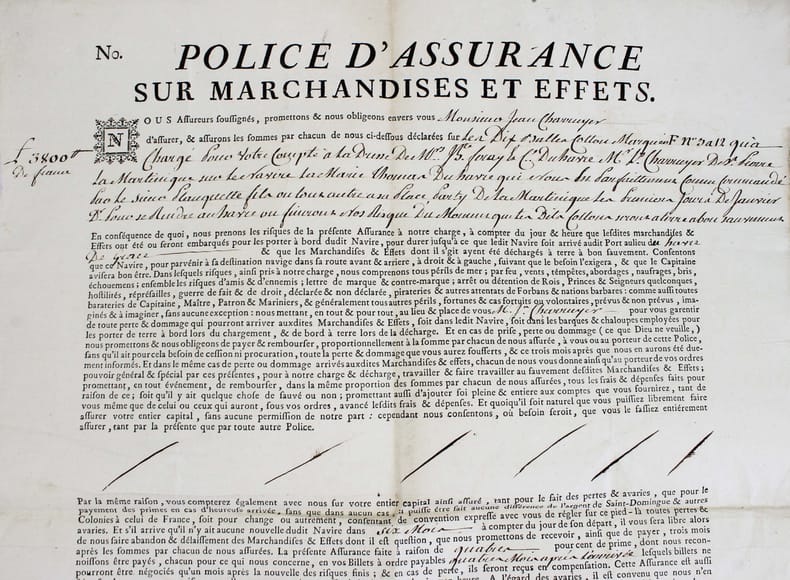 No. POLICE D'ASSURANCE
SUR MARCHANDISES ET EFFETS.
NOUS Assureurs soussignés, promettons & nous obligeons envers vous Monsieur Jean Charruyer
d'assurer, & assurons les sommes par chacun de nous ci-dessous déclarées sur Les Dix Balles Cotton F N° 3 a 12 qu'a
£ 3800
De france
Chargé Pour Votre Compte a la De
La Martinique sur le Navire La Marie Du havre que Nous Parfaittement Connu Commandé
Par le Sieur fils ou tout autre a sa Place Party De La Martinique Les Premiers Jours De Janvier
Pour se Rendre au havre ou finiront Nos Risque Du Moment que Les Dits Cottons seront a
En conséquence de quoi, nous prenons les risques de la présente Assurance à notre charge, à compter du jour & heure que lesdites marchandises &
Effets ont été ou seront embarqués pour les porter à bord dudit Navire, pour durer jusqu'à ce que ledit Navire soit arrivé audit Port au lieu des havre
De Grace & que les Marchandises & Effets dont il s'agit ayent été déchargés à terre à bon sauvement. Consentons
que ce Navire, pour parvenir à sa destination navige dans sa route avant & arriere, à droit & à gauche, suivant que le besoin l'exigera, & que le Capitaine
avisera bon être. Dans lesquels risques, ainsi pris à notre charge, nous comprenons tous périls de mer; par feu, vents, tempêtes, abordages, naufrages, bris,
échouemens; ensemble les risques d'amis & d'ennemis; lettre de marque & contre-marque; arrêt ou détention de Rois, Princes & Seigneurs quelconques,
hostilités, représailles, guerre de fait & de droit, déclarée & non déclarée, pirateries & autres attentats de Forbans & nations barbares: comme aussi toutes
barateries de Capitaine, Maître, Patron & Mariniers, & généralement tous autres périls, fortunes & cas fortuits ou volontaires, prévus & non prévus, ima-
ginés & à imaginer, sans aucune exception: nous mettant, en tout & pour tout, au lieu & place de vous M. Jn. Charruyer pour vous garentir
de toute perte & dommage qui pourront arriver auxdites Marchandises & Effets, soit dans ledit Navire, soit dans les barques & chaloupes employées pour
les porter de terre à bord lors du chargement, & de bord à terre lors de la décharge. Et en cas de prise, perte ou dommage (ce que Dieu ne veuille,)
nous promettons & nous obligeons de payer & rembourser, proportionnellement à la somme par chacun de nous assurée, à vous ou au porteur de cette Police,
sans qu'il ait pour cela besoin de cession ni procuration, toute la perte & dommage que vous aurez soufferts, & ce trois mois après que nous en aurons été due-
ment informés. Et dans le même cas de perte ou dommage arrivés auxdites Marchandises & effets, chacun de nous vous donne ainsi qu'au porteur de vos ordres
pouvoir général & spécial par ces présentes, pour à notre charge & décharge, travailler & faire travailler au sauvement desdites Marchandises & Effets;
promettant, en tout événement, de rembourser, dans la même proportion des sommes par chacun de nous assurées, tous les frais & dépenses faits pour
raison de ce; soit qu'il y ait quelque chose de sauvé ou non; promettant aussi d'ajouter foi pleine & entiere aux comptes que vous fournirez, tant de
vous même que de celui ou ceux qui auront, sous vos ordres, avancé lesdits frais & dépenses. Et quoiqu'il soit naturel que vous puissiez librement faire
assurer votre entier capital, sans aucune permission de notre part: cependant nous consentons, où besoin seroit, que vous le fassiez entiérement
assurer, tant par la présente que par toute autre Police.
Par la même raison, vous compterez également avec nous sur votre entier capital ainsi assuré, tant pour le fait des pertes & avaries, que pour le
payement des primes en cas d'heureuse arrivée, sans que dans aucun cas, il puisse être fait aucune différence de l'argent de Saint-Domingue & autres
Colonies à celui de France, soit pour change ou autrement, consentant de convention expresse avec vous de régler sur ce pied-là toutes pertes &
avaries arrivées. Et qu'il n'y ait aucune nouvelle dudit Navire dans six Mois à compter du jour de son départ, il vous sera libre alors
de nous faire abandon & délaissement des Marchandises & Effets dont il est question, que nous promettons de recevoir, ainsi que de payer, trois mois
après les sommes par chacun de nous assurées. La présente Assurance faite à raison de quatre pour cent de prime, dont nous recon-
noissons être payés, chacun pour ce qui nous concerne, en vos Billets à ordre payables quatre Mois lesquels billets ne
pourront être négociés qu'un mois après la nouvelle des risques finis; & en cas de perte, ils seront reçus en compensation. Cette Assurance est aussi
A l'égard des avaries, il est convenu que nous n'en